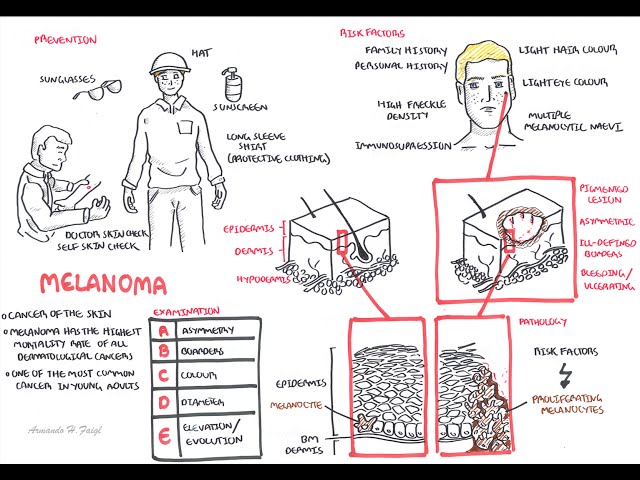 PREVENTION
HAT
SUNGLASSES
SUNSCREEN
LONG SLEEVE
SHIRT
(PROTECTIVE CLOTHING)
DOCTOR SKIN CHECK
SELF SKIN CHECK
RISK FACTORS
FAMILY HISTORY
PERSONAL HISTORY
HIGH FRECKLE
DENSITY
IMMUNOSUPRESSION
LIGHT HAIR COLOUR
LIGHT EYE COLOUR
MULTIPLE
MELANOLYTIC NAEVI
EPIDERMIS
DERMIS
HYPODERMIS
PIGMENTED
LESION
ASYMMETRIC
ILL-DEFINED
BORDERS
BLEEDING/
ULCERATING
MELANOMA
CANCER OF THE SKIN
MELANOMA HAS THE HIGHEST
MORTALITY RATE OF ALL
DERMATOLOGICAL CANCERS
ONE OF THE MOST COMMON
CANCER IN YOUNG ADULTS
EXAMINATION
A ASYMMETRY
B BORDERS
C COLOUR
D DIAMETER
E ELEVATION/
EVOLUTION
EPIDERMIS
MELANOCYTE
BM
DERMIS
PATHOLOGY
RISK FACTORS
PROLIFERATING
MELANOCYTES
Armando H. Faigl